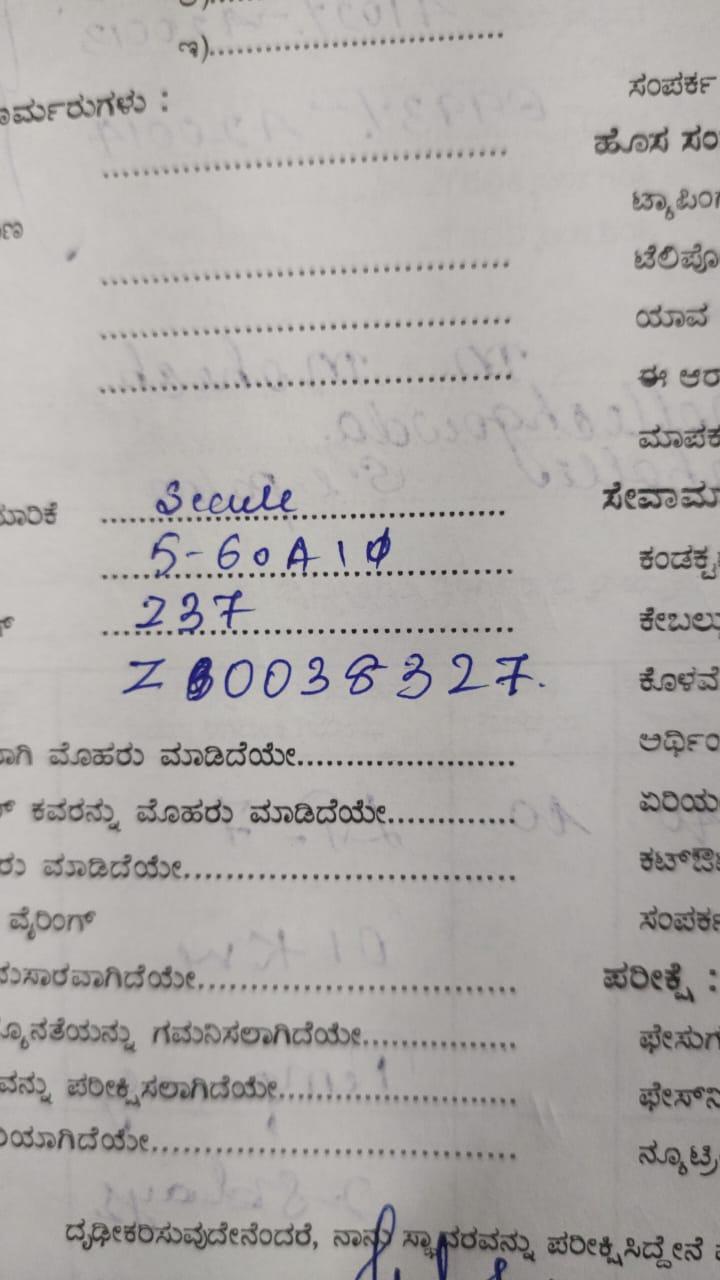 ಣ)
ರ್ಮರುಗಳು :
ಸಂಪರ್ಕ
ಹೊಸ ಸಂ
ಟ್ಯಾಪಿಂಗ
ಣ
ಟೆಲಿಫೊ
ಯಾವ
ಈ ಆರ
ಮಾಪಕ
ಯಾರಿಕೆ Secure ಸೇವಾಮಾ
5-60A 1φ ಕಂಡಕ್ಟ
237 ಕೇಬಲ್
Z 0038327. ಕೊಳವೆ
ಾಗಿ ಮೊಹರು ಮಾಡಿದೆಯೇ ಅರ್ಥಿಂ
ಕವರನ್ನು ಮೊಹರು ಮಾಡಿದೆಯೇ ಏರಿಯ
ರು ಮಾಡಿದೆಯೇ ಕಟ್‌ಔಟ
ವೈರಿಂಗ್ ಸಂಪರ್ಕ
ನುಸಾರವಾಗಿದೆಯೇ ಪರೀಕ್ಷೆ :
ನ್ಯೂನತೆಯನ್ನು ಗಮನಿಸಲಾಗಿದೆಯೇ ಫೇಸುಗ
ವನ್ನು ಪರೀಕ್ಷಿಸಲಾಗಿದೆಯೇ ಫೇಸ್‌ನಿ
ರಿಯಾಗಿದೆಯೇ ನ್ಯೂಟ್ರಿ
ದೃಢೀಕರಿಸುವುದೇನೆಂದರೆ, ನಾನು ಸ್ಥಾವರವನ್ನು ಪರೀಕ್ಷಿಸಿದ್ದೇನೆ